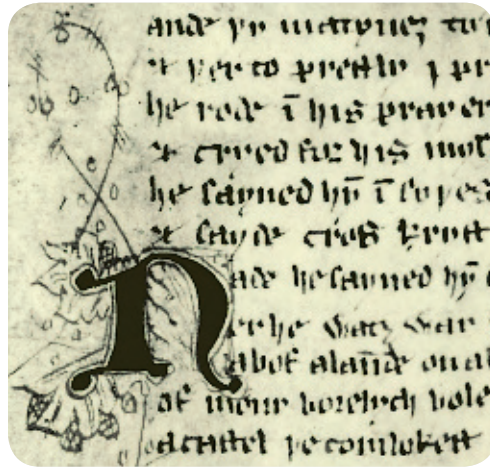 ande þy matyneȝ to
& þerto prestly I pr
he rode ī his prayer
& cryed for his mys
he sayned hȳ ī syþes
& sayde cros kryst
Nade he sayned hȳ
er he watȝ war
abof alaūde on a
of mony borelych bole
a castel þe comlokest